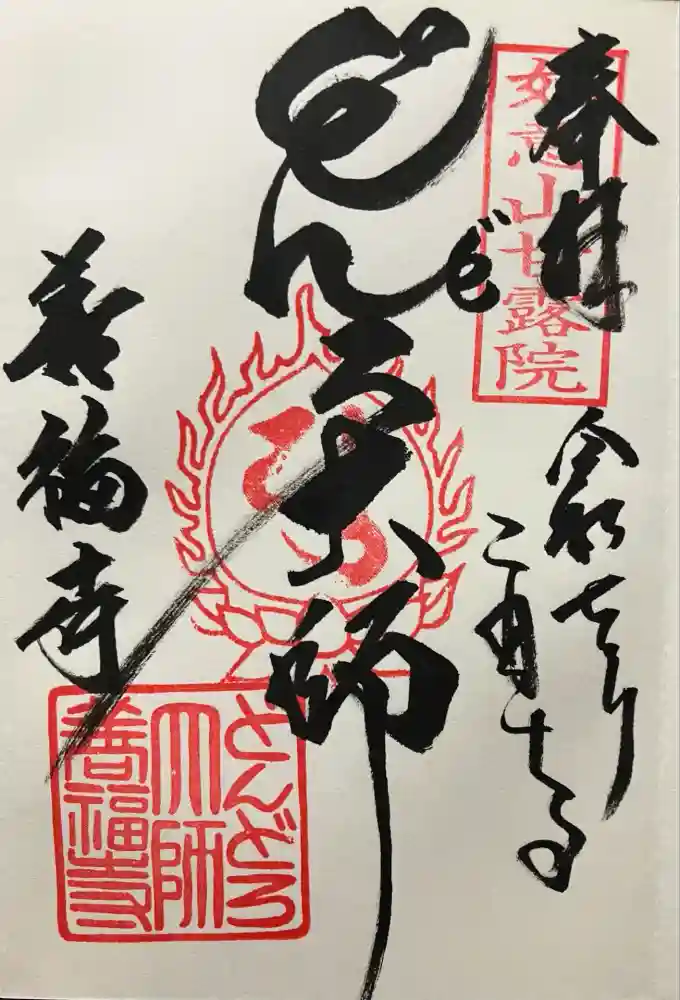 奉拝
如意山甘露院
令和七年
二月
どんどろ大師
善福寺
どんどろ
大師
善福寺